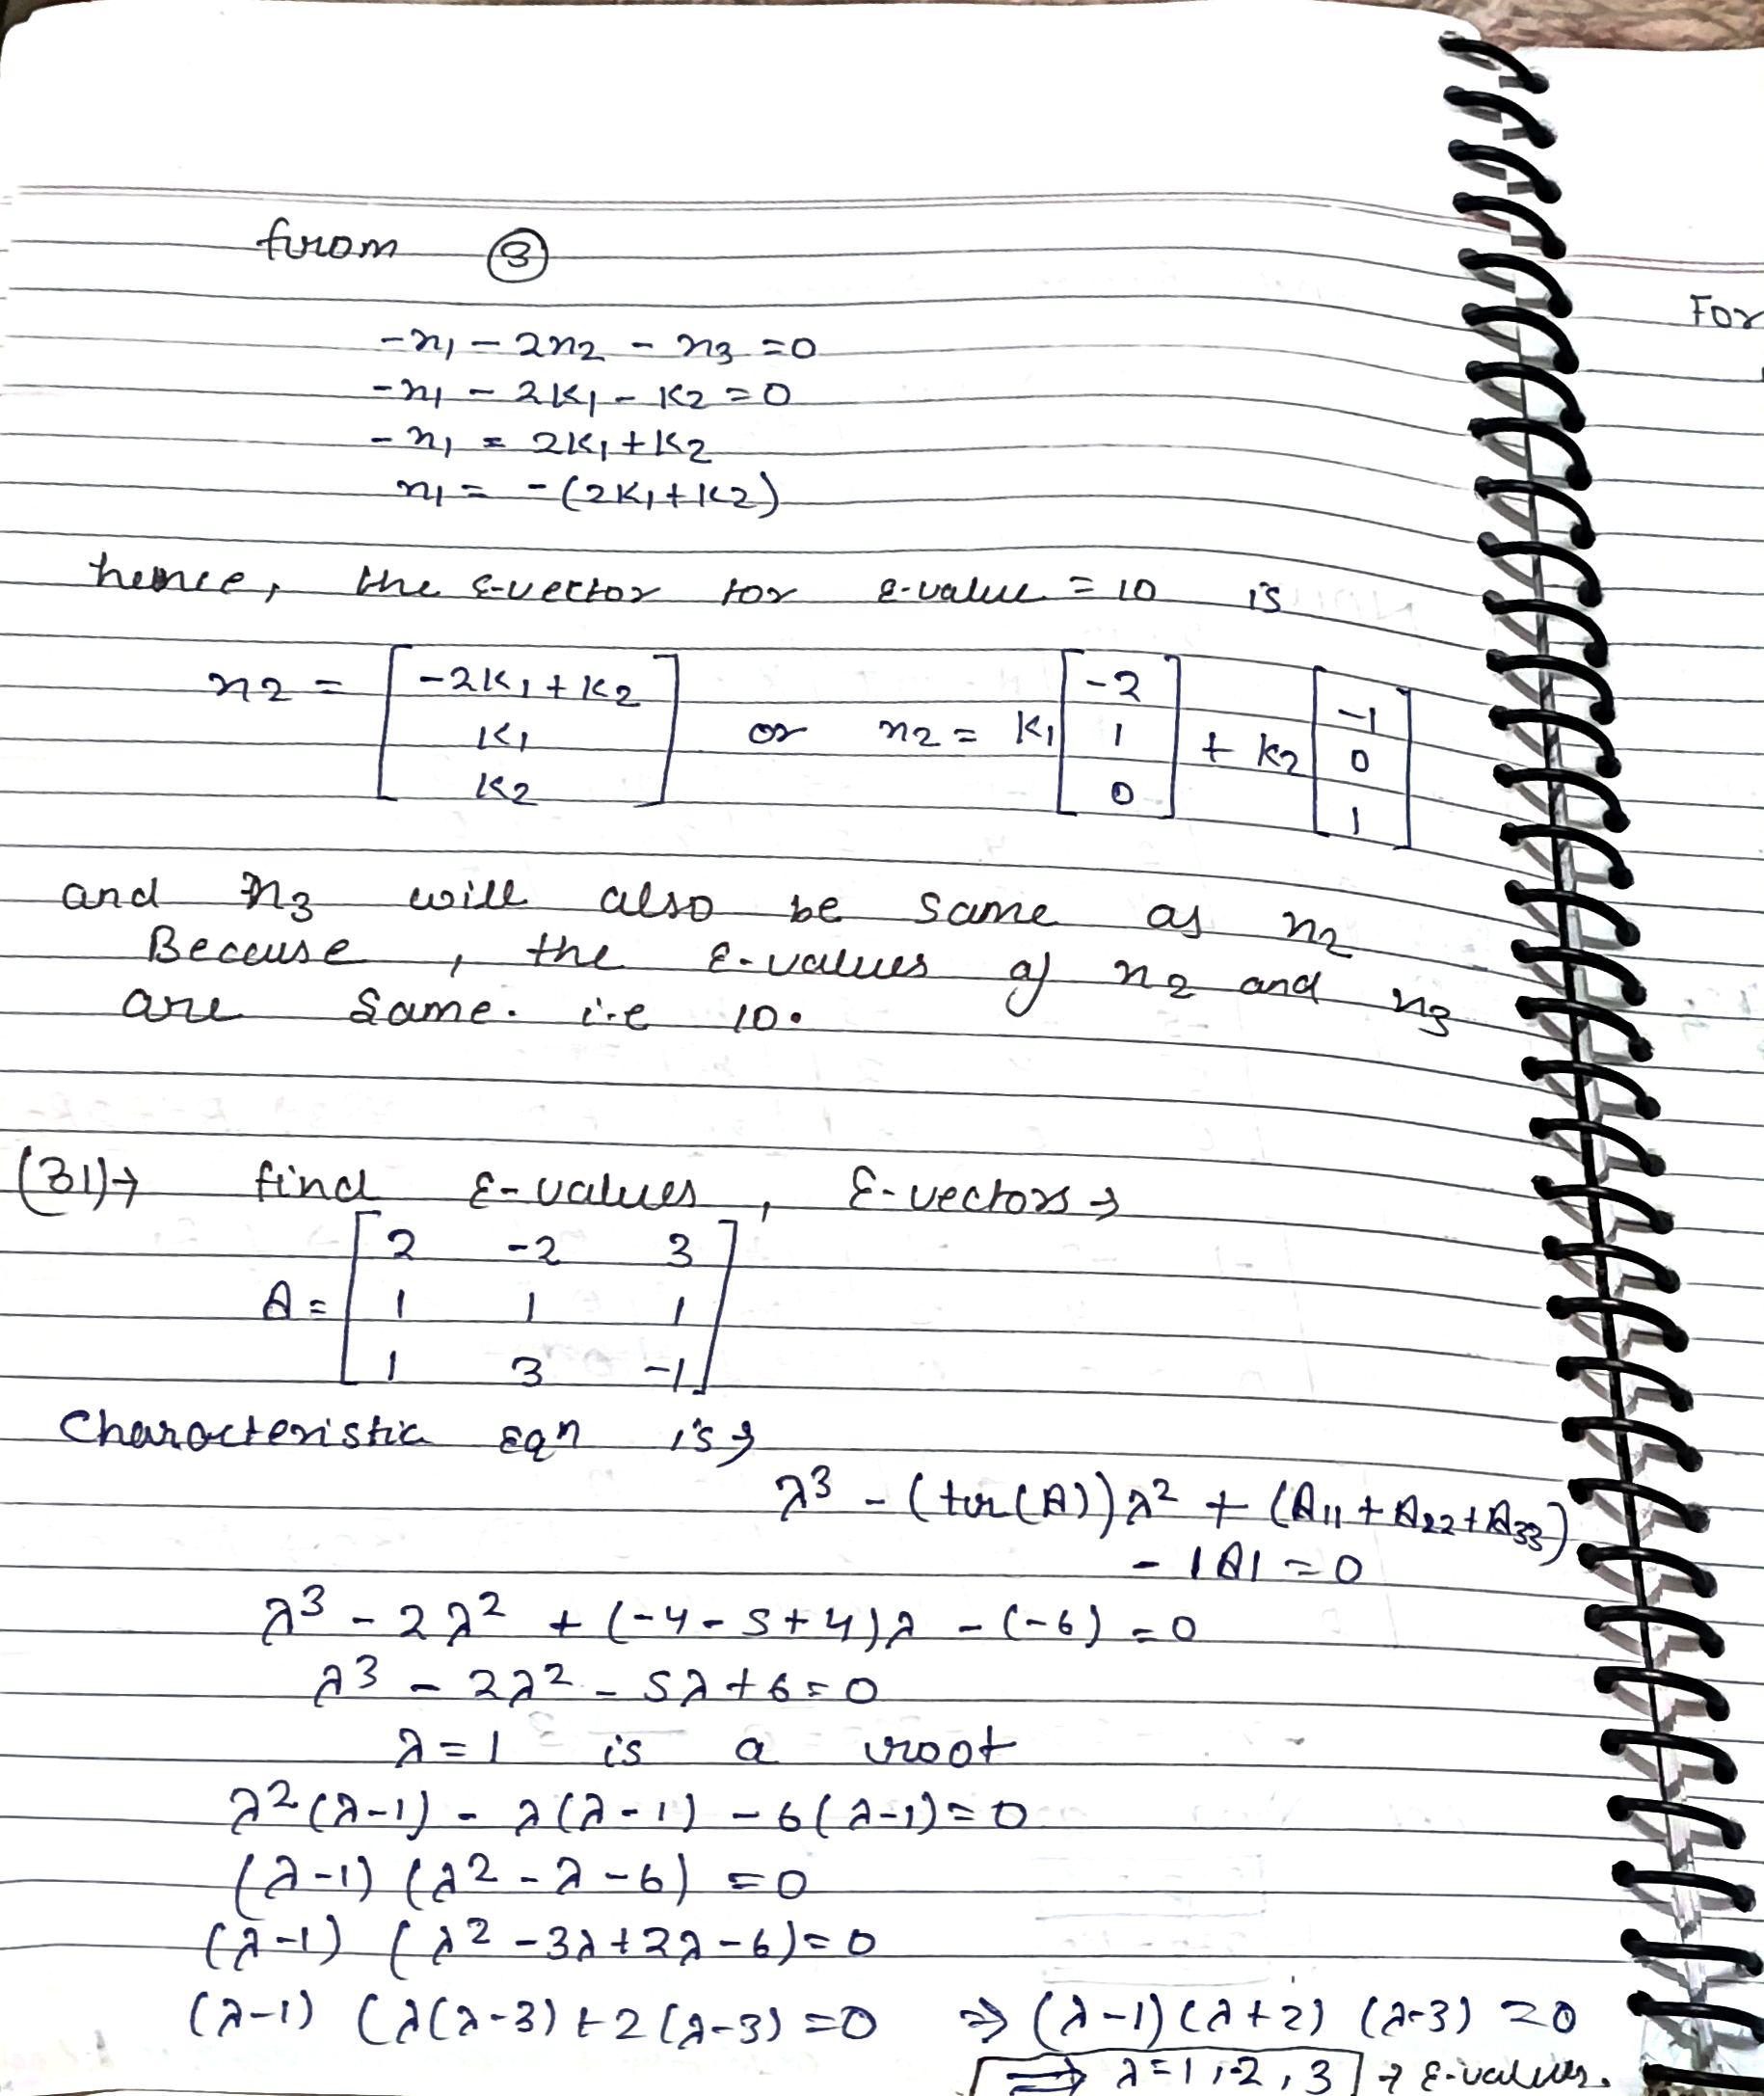 from ③
-x1 - 2x2 - x3 = 0
-x1 - 2k1 - k2 = 0
-x1 = 2k1 + k2
x1 = -(2k1 + k2)
hence, the E-vector for E-value = 10 is
x2 = [-2k1 + k2
k1
k2] or x2 = k1 [-2
1
0] + k2 [-1
0
1]
and x3 will also be same as x2
Because, the E-values of x2 and x3
are same. i.e 10.
(31)→ find E-values, E-vectors →
A = [2 -2 3
1 1 1
1 3 -1]
Characteristic Eqn is →
λ³ - (tr(A))λ² + (A11 + A22 + A33)
- |A| = 0
λ³ - 2λ² + (-4 - 5 + 4)λ - (-6) = 0
λ³ - 2λ² - 5λ + 6 = 0
λ = 1 is a root
λ²(λ-1) - λ(λ-1) - 6(λ-1) = 0
(λ-1) (λ² - λ - 6) = 0
(λ-1) (λ² - 3λ + 2λ - 6) = 0
(λ-1) (λ(λ-3) + 2(λ-3) = 0 ⇒ (λ-1)(λ+2) (λ-3) = 0
⇒ λ = 1, -2, 3 → E-values.
For